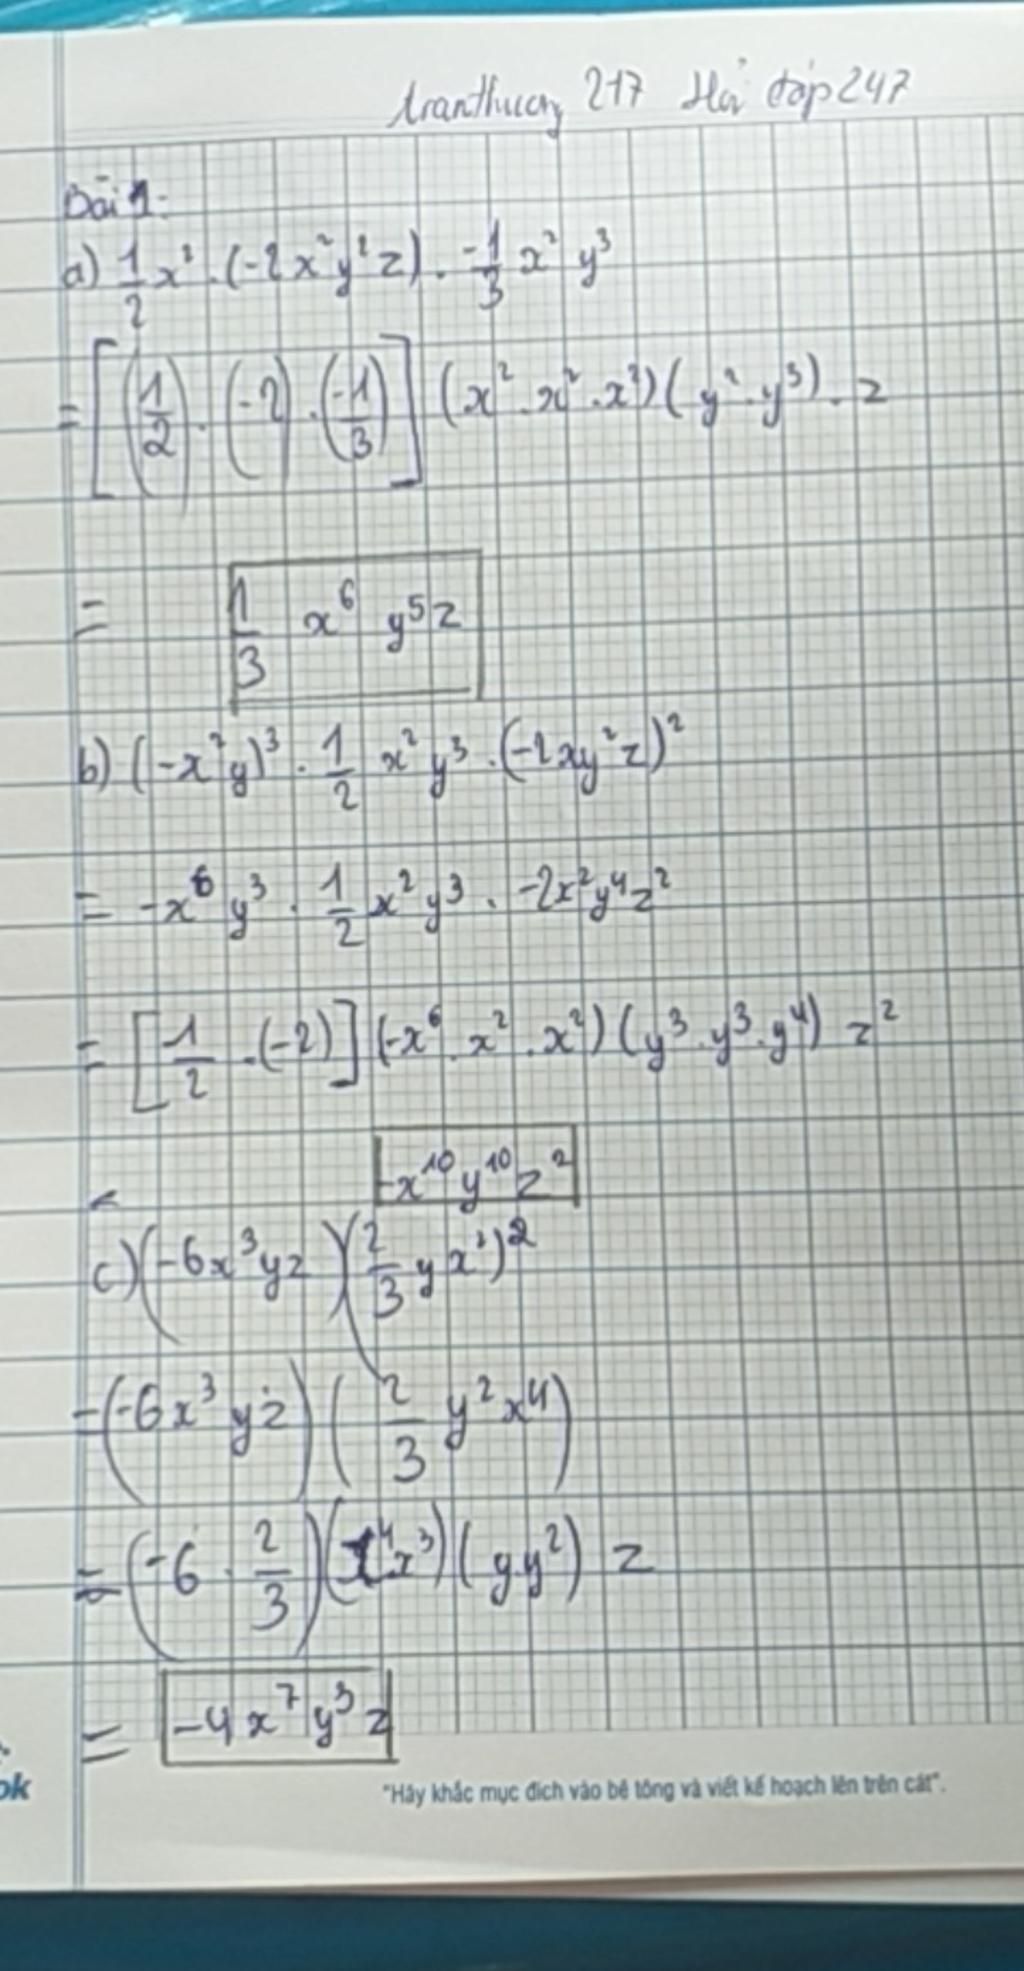 tranthuong 217 Hỏi đáp 247
Bài 1:
a) 1/2 x² . (-2x²y²z) . -1/3 x² y³
= [(1/2) . (-2) . (-1/3)] (x² . x² . x²) ( y² . y³) . z
= 1/3 x⁶ y⁵z
b) (-x²y)³ . 1/2 x² y³ . (-2xy²z)²
= -x⁶y³ . 1/2 x²y³ . -2x²y⁴z²
= [1/2 . (-2)] (-x⁶ . x² . x²) (y³ . y³ . y⁴) z²
-x¹⁰y¹⁰z²
c) (-6x³yz) (2/3 yx²)²
= (-6x³ yz) (2/3 y²x⁴)
= (-6 . 2/3) (x⁴x³) (y.y²) z
= -4x⁷y³z
ok
"Hãy khắc mục đích vào bê tông và viết kế hoạch lên trên cát".